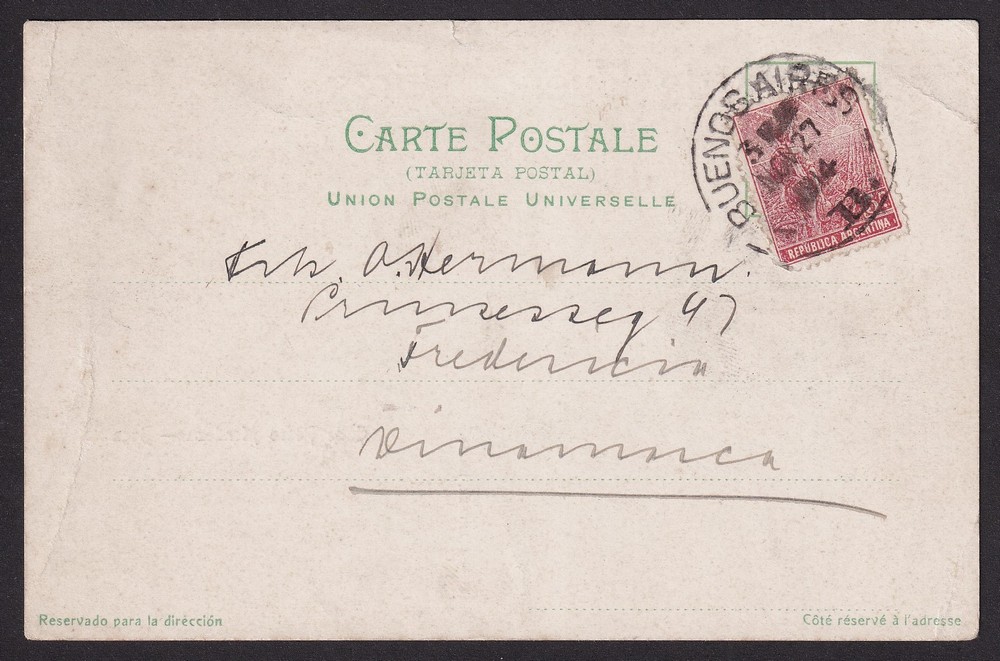 CARTE POSTALE
(TARJETA POSTAL)
UNION POSTALE UNIVERSELLE
BUENOS AIRES
27
REPÚBLICA ARGENTINA
Frk. O. Hermann.
Prinsesseg 47
Fredericia
Dinamarca
Reservado para la dirección
Côté réservé à l'adresse